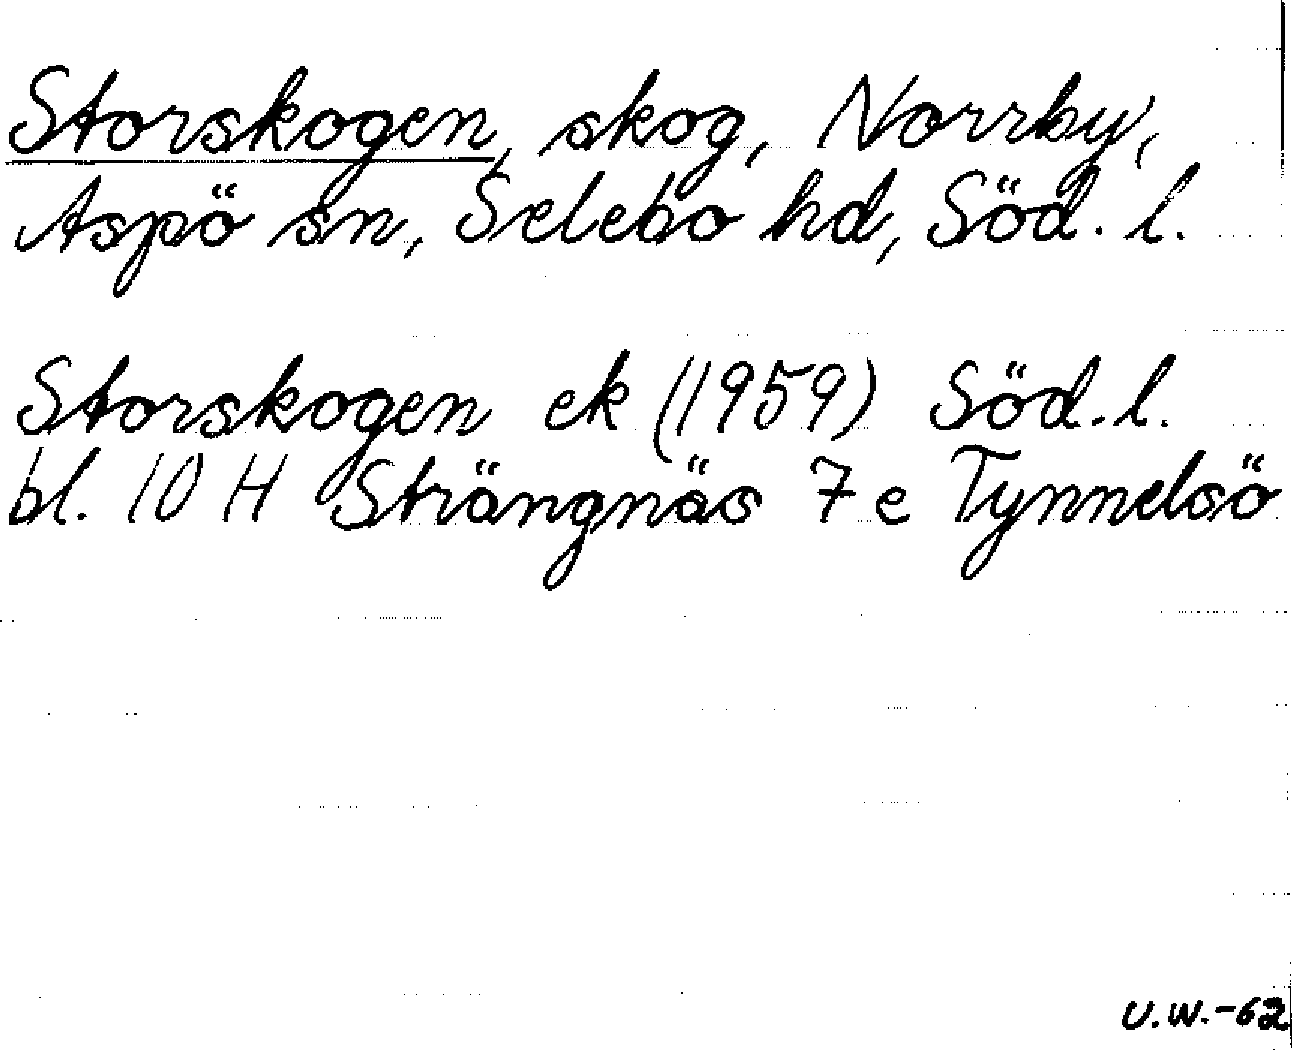 Storskogen, skog, Norrby,
Aspö sn, Selebo hd, Söd. l.
Storskogen ek (1959) Söd. l.
bl. 10 H Strängnäs 7 e Tynnelsö
U.W.-62